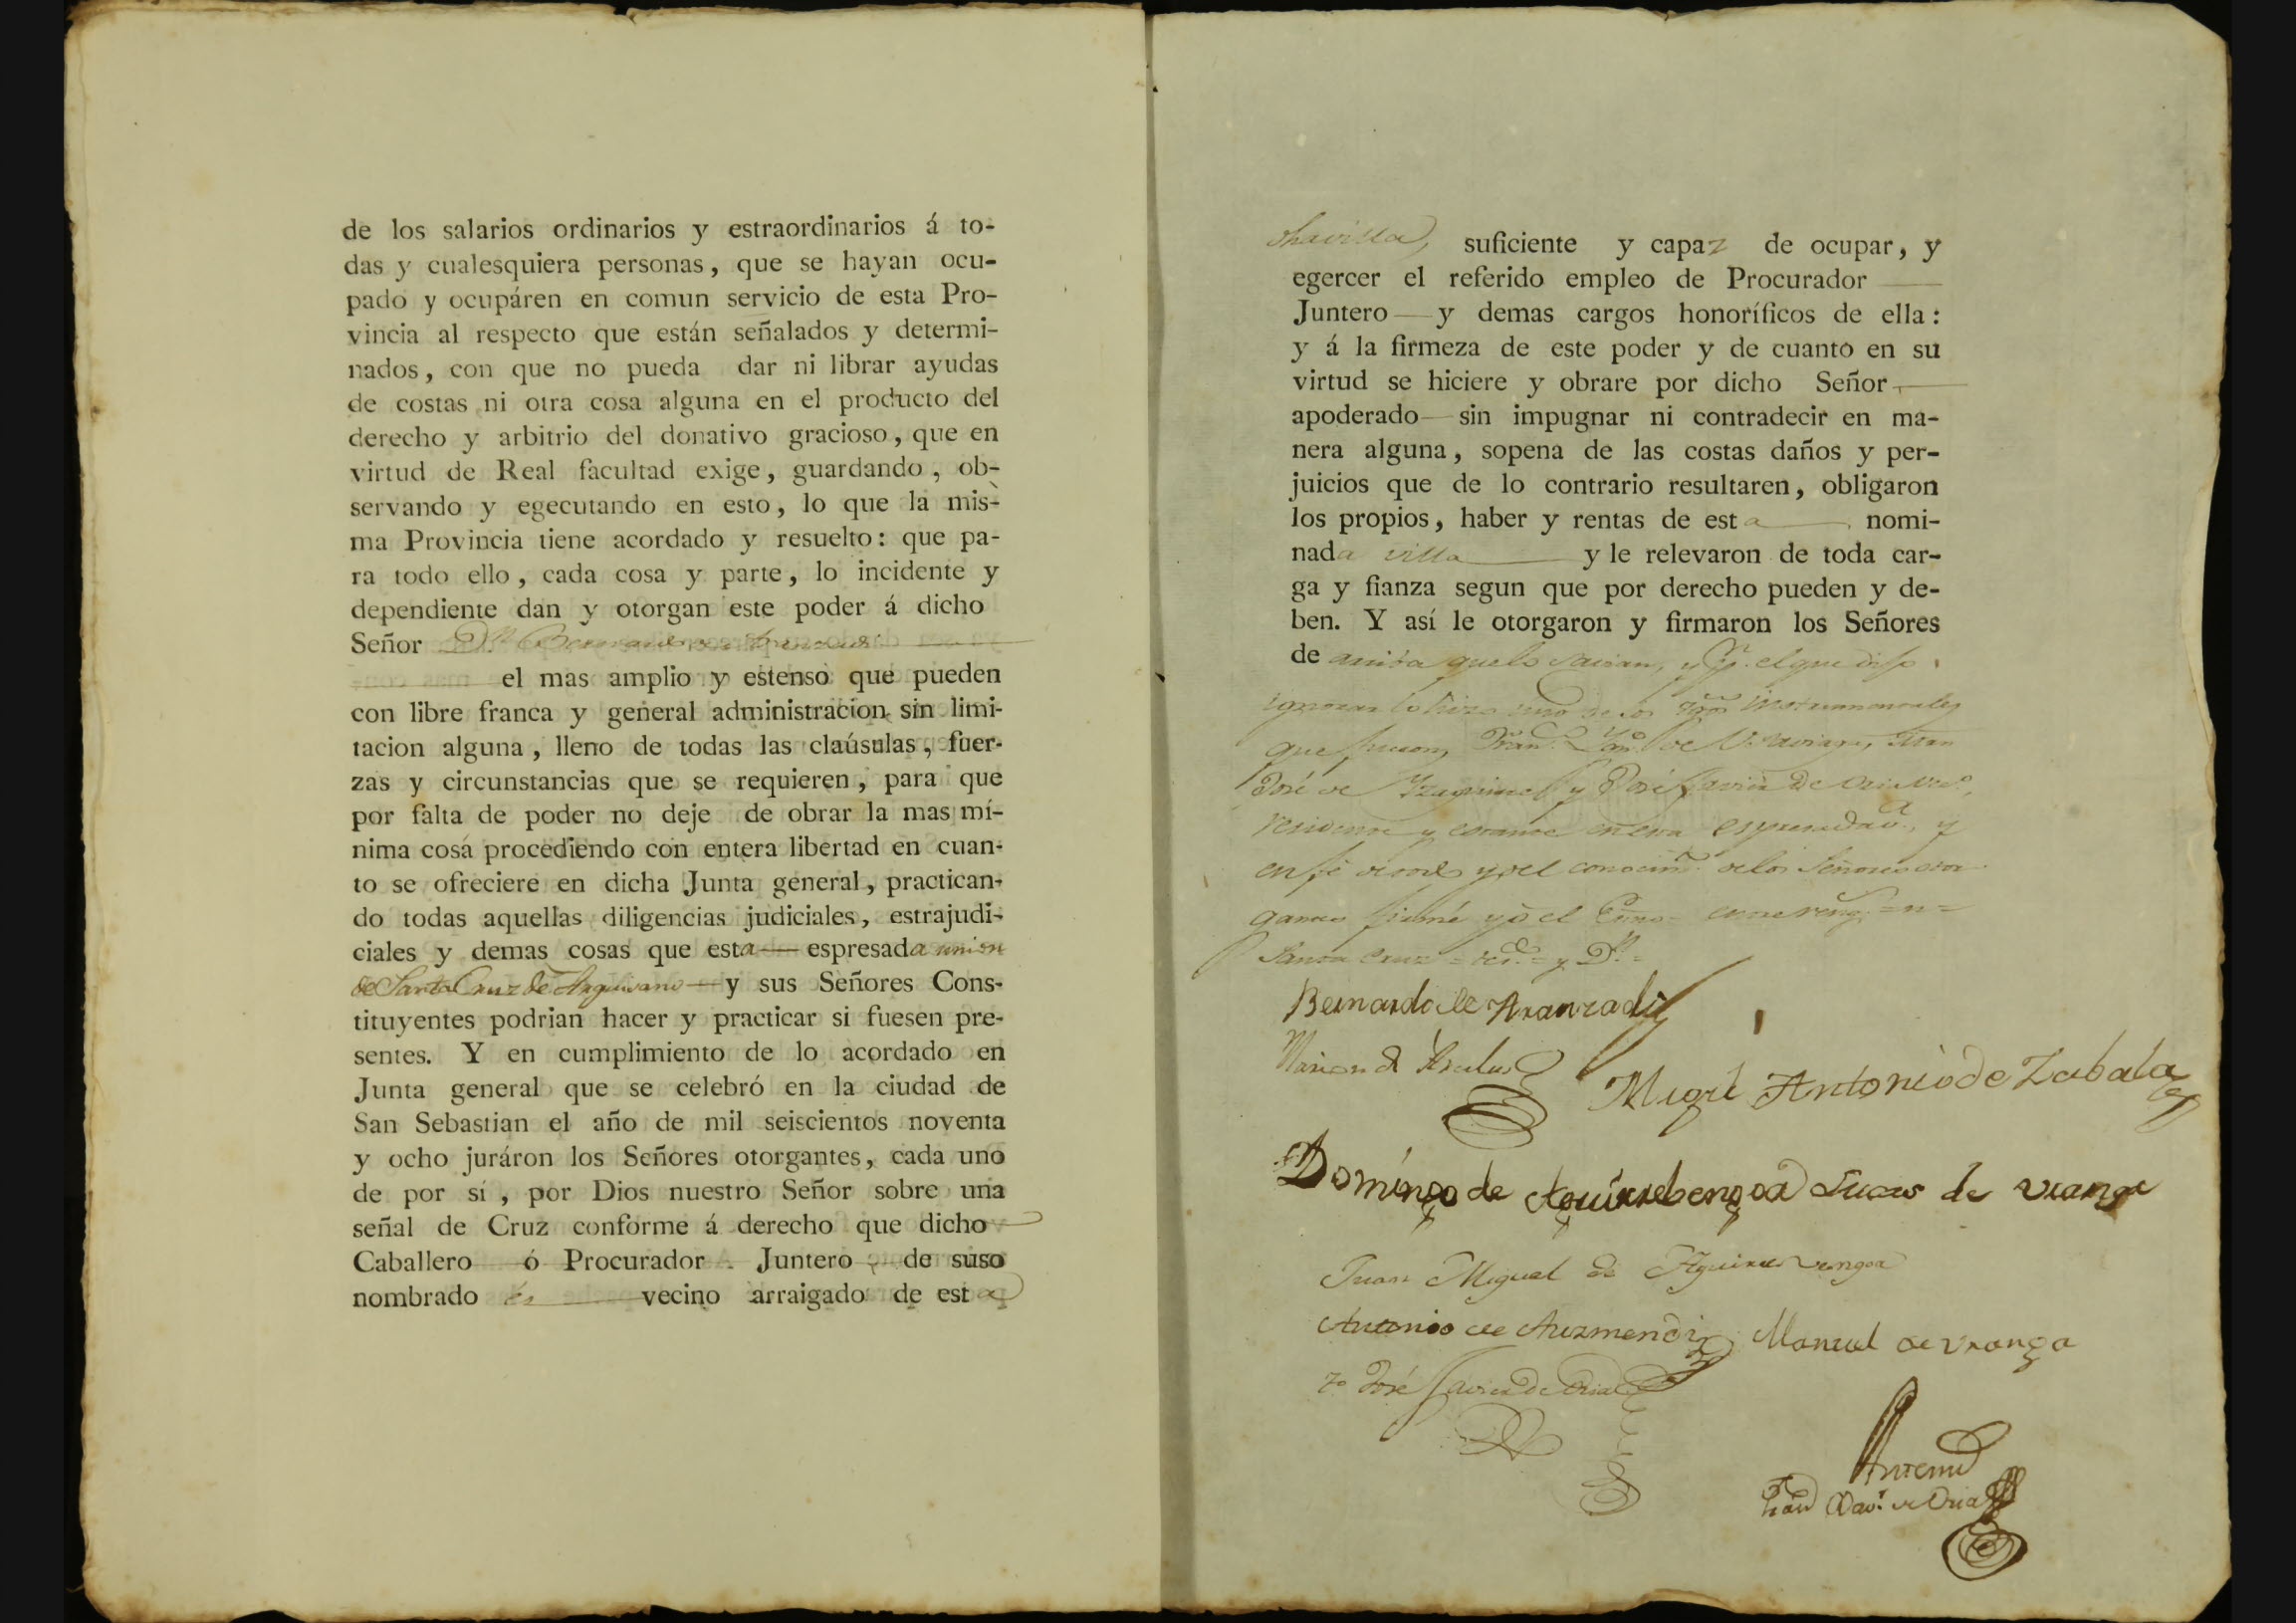 de los salarios ordinarios y estraordinarios á to-
das y cualesquiera personas, que se hayan ocu-
pado y ocupáren en comun servicio de esta Pro-
vincia al respecto que están señalados y determi-
nados, con que no pueda dar ni librar ayudas
de costas ni otra cosa alguna en el producto del
derecho y arbitrio del donativo gracioso, que en
virtud de Real facultad exige, guardando, ob-
servando y egecutando en esto, lo que la mis-
ma Provincia tiene acordado y resuelto: que pa-
ra todo ello, cada cosa y parte, lo incidente y
dependiente dan y otorgan este poder á dicho
Señor Dn. Bernardo de Aranzadi
el mas amplio y estenso que pueden
con libre franca y general administracion sin limi-
tacion alguna, lleno de todas las claúsulas, fuer-
zas y circunstancias que se requieren, para que
por falta de poder no deje de obrar la mas mí-
nima cosa procediendo con entera libertad en cuan-
to se ofreciere en dicha Junta general, practican-
do todas aquellas diligencias judiciales, estrajudi-
ciales y demas cosas que esta espresada union
de Santa Cruz de Arguisano y sus Señores Cons-
tituyentes podrian hacer y practicar si fuesen pre-
sentes. Y en cumplimiento de lo acordado en
Junta general que se celebró en la ciudad de
San Sebastian el año de mil seiscientos noventa
y ocho juráron los Señores otorgantes, cada uno
de por sí, por Dios nuestro Señor sobre una
señal de Cruz conforme á derecho que dicho
Caballero ó Procurador Juntero de suso
nombrado és vecino arraigado de esta
villa, suficiente y capaz de ocupar, y
egercer el referido empleo de Procurador
Juntero y demas cargos honoríficos de ella:
y á la firmeza de este poder y de cuanto en su
virtud se hiciere y obrare por dicho Señor
apoderado sin impugnar ni contradecir en ma-
nera alguna, sopena de las costas daños y per-
juicios que de lo contrario resultaren, obligaron
los propios, haber y rentas de esta nomi-
nada villa y le relevaron de toda car-
ga y fianza segun que por derecho pueden y de-
ben. Y así le otorgaron y firmaron los Señores
de arriba que lo savian, y pr. el que dijo
ignorar lo hizo uno de los tgos. instrumentales
que fueron, Fran.co
José de y José Javier de Oria
residente y estante en esta espresada va., y
en fé de todo y del conocimto. de los Señores otor
gantes firmé yo el Esno.
Santa Cruz
Bernardo de Aranzadi
Miguel Antonio de Zabala
Domingo de Aguirrebengoa Lucas de Vranga
Juan Miguel de Aguirrevengoa
Antonio de Auzmendi Manuel de Vranga
To. José Javier de Oria
Antemi
Fran.co Xavr. de Oria